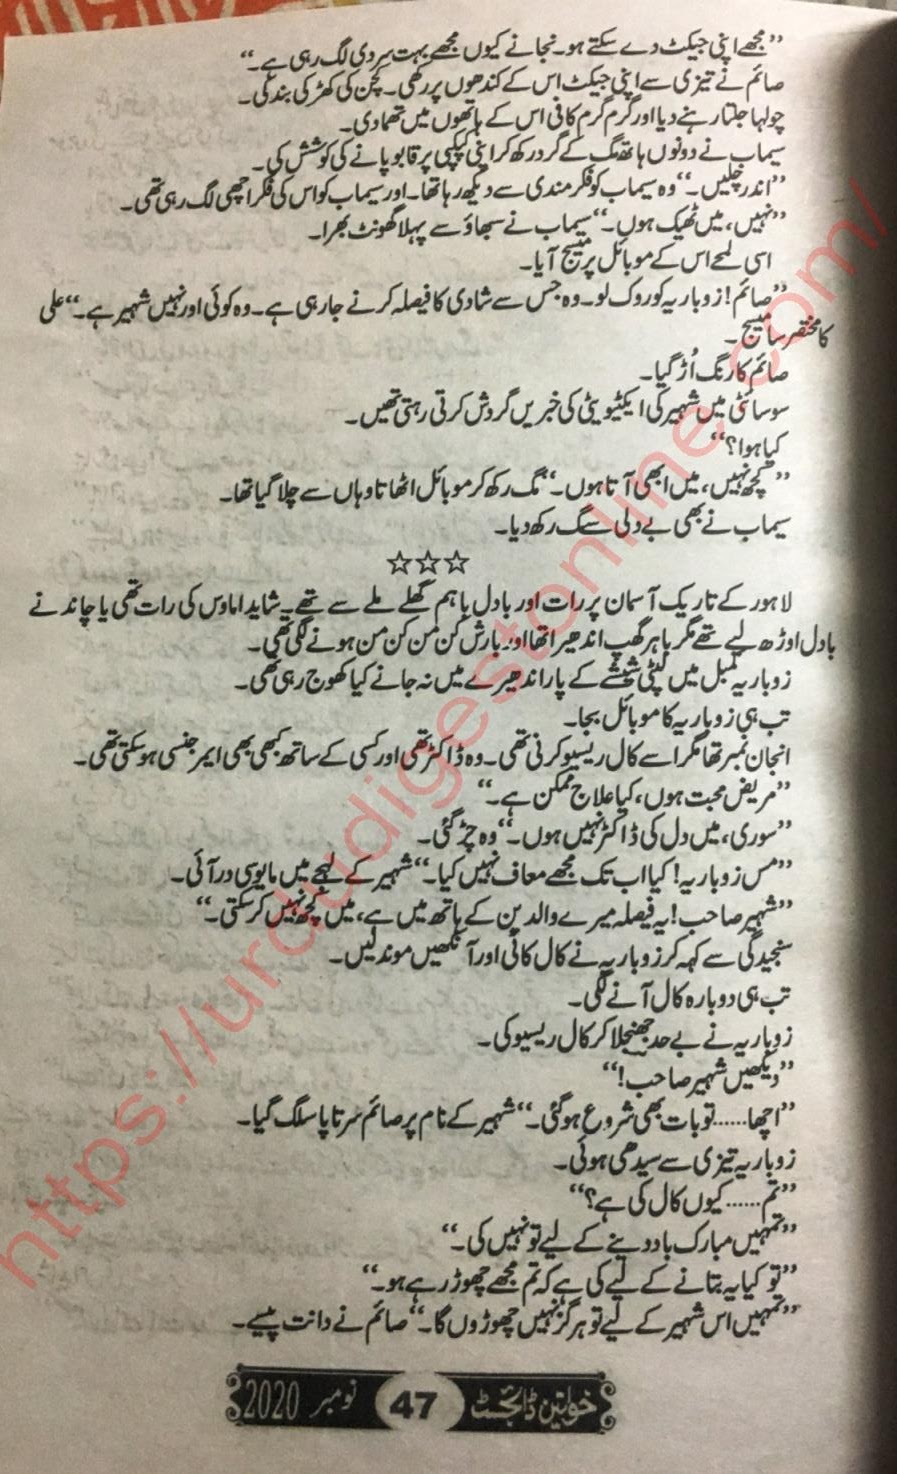 ”مجھے اپنی جیکٹ دے سکتے ہو۔ نجانے کیوں مجھے بہت سردی لگ رہی ہے۔“
صائم نے تیزی سے اپنی جیکٹ اس کے کندھوں پر رکھی۔ کچن کی کھڑکی بند کی۔
چولہا جلتا رہنے دیا اور گرم گرم کافی اس کے ہاتھوں میں تھما دی۔
سیماب نے دونوں ہاتھ مگ کے گرد رکھ کر اپنی کپکپی پر قابو پانے کی کوشش کی۔
”اندر چلیں۔“ وہ سیماب کو فکر مندی سے دیکھ رہا تھا۔ اور سیماب کو اس کی فکر اچھی لگ رہی تھی۔
”نہیں، میں ٹھیک ہوں۔“ سیماب نے سبھاؤ سے پہلا گھونٹ بھرا۔
اسی لمحے اس کے موبائل پر میسج آیا۔
”صائم! زوباریہ کو روک لو۔ وہ جس سے شادی کا فیصلہ کرنے جا رہی ہے۔ وہ کوئی اور نہیں شہیر ہے۔“ علی
کا مختصر سا میسج۔
صائم کا رنگ اُڑ گیا۔
سوسائٹی میں شہیر کی ایکٹیویٹی کی خبریں گردش کرتی رہتی تھیں۔
کیا ہوا؟“
”کچھ نہیں، میں ابھی آتا ہوں۔“ مگ رکھ کر موبائل اٹھاتا وہاں سے چلا گیا تھا۔
سیماب نے بھی بے دلی سے مگ رکھ دیا۔
☆☆☆
لاہور کے تاریک آسمان پر رات اور بادل باہم گھلے ملے سے تھے۔ شاید اماوس کی رات تھی یا چاند نے
بادل اوڑھ لیے تھے مگر باہر گھپ اندھیرا تھا اور بارش کن من کن من ہونے لگی تھی۔
زوباریہ کمبل میں لپٹی شیشے کے پار اندھیرے میں نہ جانے کیا کھوج رہی تھی۔
تب ہی زوباریہ کا موبائل بجا۔
انجان نمبر تھا مگر اسے کال ریسیو کرنی تھی۔ وہ ڈاکٹر تھی اور کسی کے ساتھ کبھی بھی ایمرجنسی ہو سکتی تھی۔
”مریض محبت ہوں، کیا علاج ممکن ہے۔“
”سوری، میں دل کی ڈاکٹر نہیں ہوں۔“ وہ چڑ گئی۔
”مس زوباریہ! کیا اب تک مجھے معاف نہیں کیا۔“ شہیر کے لہجے میں مایوسی در آئی۔
”شہیر صاحب! یہ فیصلہ میرے والدین کے ہاتھ میں ہے، میں کچھ نہیں کر سکتی۔“
سنجیدگی سے کہہ کر زوباریہ نے کال کاٹی اور آنکھیں موند لیں۔
تب ہی دوبارہ کال آنے لگی۔
زوباریہ نے بے حد جھنجلا کر کال ریسیو کی۔
”دیکھیں شہیر صاحب!“
”اچھا...... تو بات بھی شروع ہو گئی۔“ شہیر کے نام پر صائم سرتاپا سلگ گیا۔
زوباریہ تیزی سے سیدھی ہوئی۔
”تم...... کیوں کال کی ہے؟“
”تمہیں مبارک باد دینے کے لیے تو نہیں کی۔“
”تو کیا یہ بتانے کے لیے کی ہے کہ تم مجھے چھوڑ رہے ہو۔“
”تمہیں اس شہیر کے لیے تو ہرگز نہیں چھوڑوں گا۔“ صائم نے دانت پیسے۔
خواتین ڈائجسٹ 47 نومبر 2020
https://urdudigestonline.com/